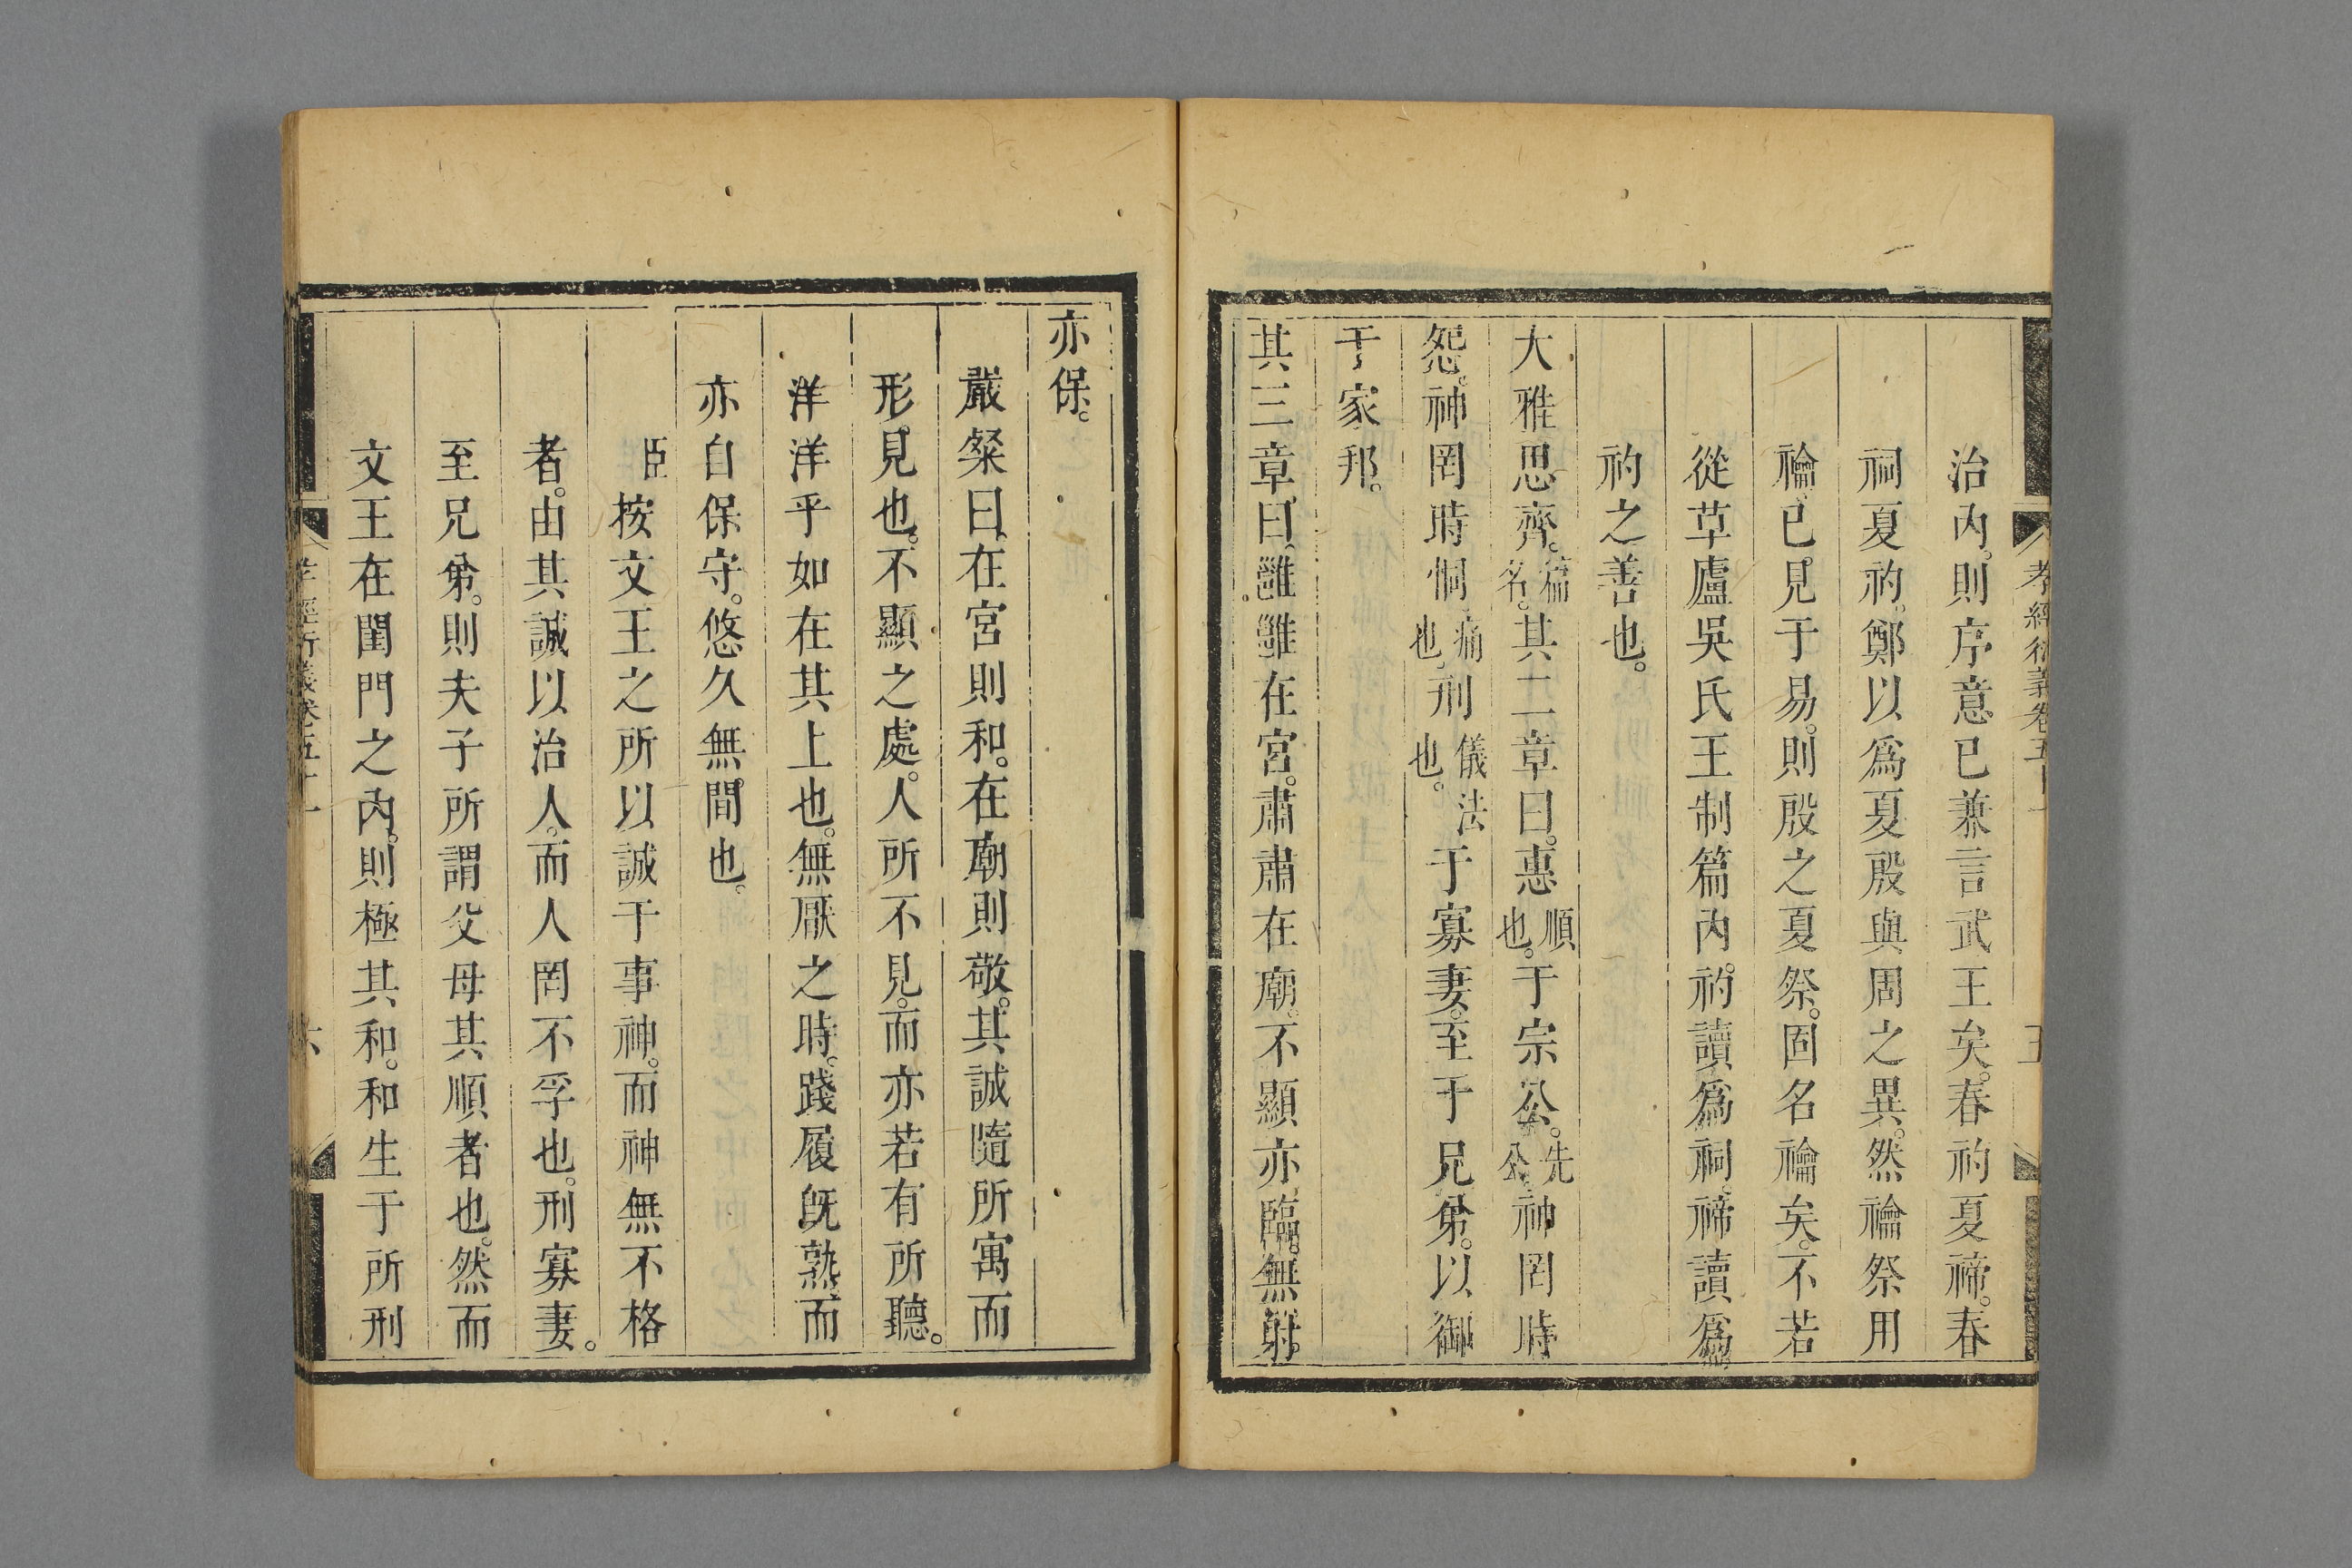 孝經衍義卷五十一
五
治內。則序意已兼言武王矣。春礿夏禘。春
祠夏礿。鄭以爲夏殷與周之異。然禴祭用
禴。已見于易。則殷之夏祭。固名禴矣。不若
從草廬吳氏王制篇內。礿讀爲祠。禘讀爲
礿之善也。
大雅思齊。篇名。其二章曰。惠順也。于宗公。先公。神罔時
怨。神罔時恫痛也。刑儀法也。于寡妻。至于兄弟。以御
于家邦。
其三章曰。雝雝在宮。肅肅在廟。不顯亦臨。無射
亦保。
嚴粲曰。在宮則和。在廟則敬。其誠隨所寓而
形見也。不顯之處。人所不見。而亦若有所聽。
洋洋乎如在其上也。無厭之時。踐履旣熟。而
亦自保守。悠久無間也。
臣按文王之所以誠于事神。而神無不格
者。由其誠以治人。而人罔不孚也。刑寡妻。
至兄弟。則夫子所謂父母其順者也。然而
文王在閨門之內。則極其和。和生于所刑
孝經衍義卷五十一
六